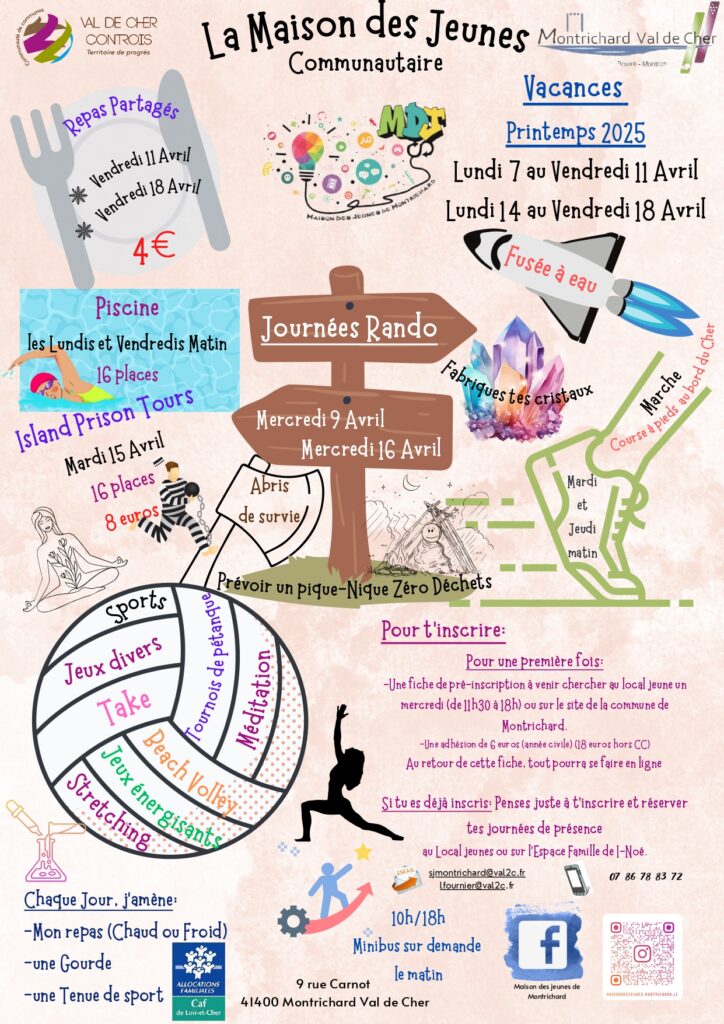 Communauté de communes
VAL DE CHER
CONTROIS
Territoire de progrès
La Maison des Jeunes
Communautaire
Montrichard Val de Cher
Bourré - Montrich
Vacances
Printemps 2025
Lundi 7 au Vendredi 11 Avril
Lundi 14 au Vendredi 18 Avril
Repas Partagés
Vendredi 11 Avril
Vendredi 18 Avril
4€
MDJ
MAISON DES JEUNES DE MONTRICHARD
Fusée à eau
Piscine
les Lundis et Vendredis Matin
16 places
Journées Rando
Mercredi 9 Avril
Mercredi 16 Avril
Fabriques tes cristaux
Marche
Course à pieds au bord du Cher
Mardi
et
Jeudi
matin
Island Prison Tours
Mardi 15 Avril
16 places
8 euros
Abris
de survie
Prévoir un pique-Nique Zéro Déchets
Sports
Jeux divers
Take
Tournois de pétanque
Méditation
Beach Volley
Jeux énergisants
Stretching
Pour t'inscrire:
Pour une première fois:
-Une fiche de pré-inscription à venir chercher au local jeune un
mercredi (de 11h30 à 18h) ou sur le site de la commune de
Montrichard.
-Une adhésion de 6 euros (année civile) (18 euros hors CC)
Au retour de cette fiche, tout pourra se faire en ligne
Si tu es déjà inscris: Penses juste à t'inscrire et réserver
tes journées de présence
au Local jeunes ou sur l'Espace Famille de I-Noé.
EMAIL
sjmontrichard@val2c.fr
lfournier@val2c.fr
07 86 78 83 72
Chaque Jour, j'amène:
-Mon repas (Chaud ou Froid)
-une Gourde
-une Tenue de sport
ALLOCATIONS
FAMILIALES
Caf
de Loir-et-Cher
10h/18h
Minibus sur demande
le matin
9 rue Carnot
41400 Montrichard Val de Cher
f
Maison des jeunes de
Montrichard
MAISONDESJEUNES.MONTRICHARD.LF